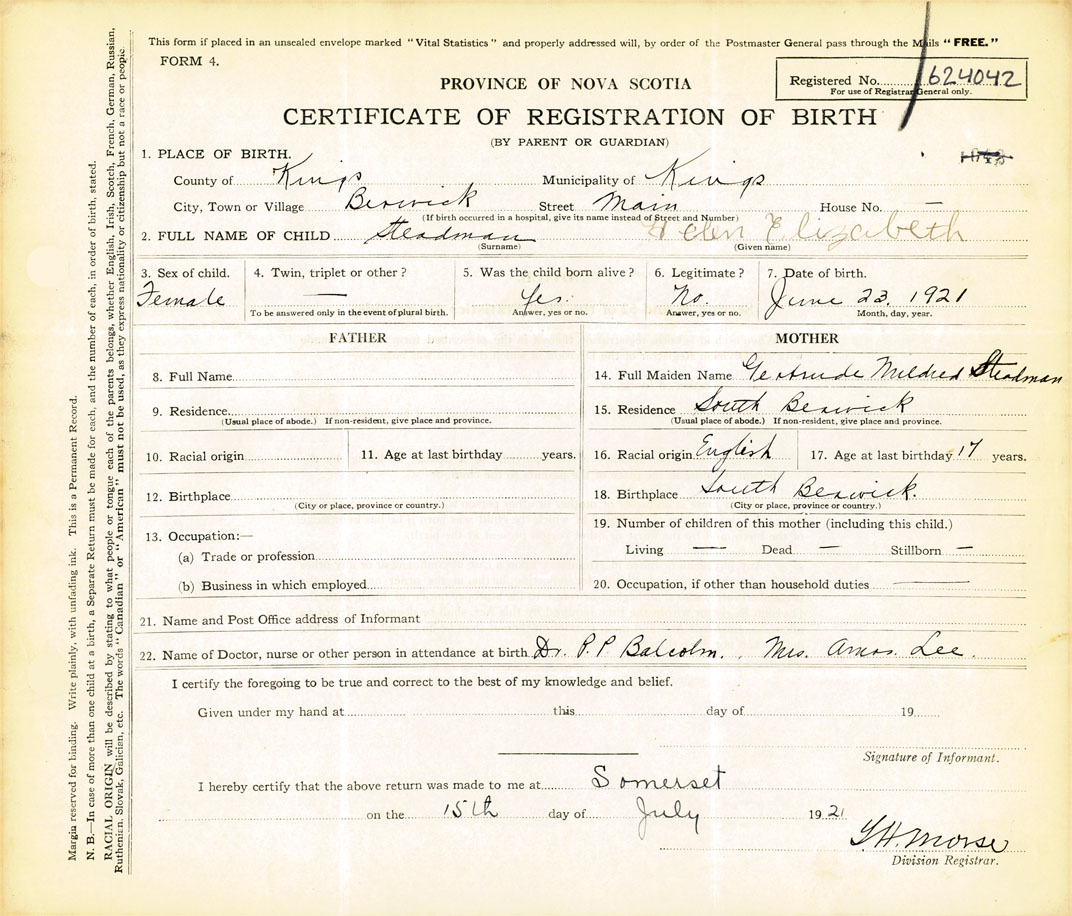 This form if placed in an unsealed envelope marked "Vital Statistics" and properly addressed will, by order of the Postmaster General pass through the Mails "FREE."
FORM 4.
Registered No. 624042
For use of Registrar General only.
PROVINCE OF NOVA SCOTIA
CERTIFICATE OF REGISTRATION OF BIRTH
(BY PARENT OR GUARDIAN)
1. PLACE OF BIRTH.
County of Kings Municipality of Kings
City, Town or Village Berwick Street Main House No. —
(If birth occurred in a hospital, give its name instead of Street and Number)
2. FULL NAME OF CHILD Steadman Helen Elizabeth
(Surname) (Given name)
3. Sex of child. 4. Twin, triplet or other? 5. Was the child born alive? 6. Legitimate? 7. Date of birth.
Female — Yes. No. June 23, 1921
To be answered only in the event of plural birth. Answer, yes or no. Answer, yes or no. Month, day, year.
FATHER
8. Full Name
9. Residence
(Usual place of abode.) If non-resident, give place and province.
10. Racial origin 11. Age at last birthday years.
12. Birthplace
(City or place, province or country.)
13. Occupation:—
(a) Trade or profession
(b) Business in which employed
MOTHER
14. Full Maiden Name Gertrude Mildred Steadman
15. Residence South Berwick
(Usual place of abode.) If non-resident, give place and province.
16. Racial origin English 17. Age at last birthday 17 years.
18. Birthplace South Berwick.
(City or place, province or country.)
19. Number of children of this mother (including this child.)
Living — Dead — Stillborn —
20. Occupation, if other than household duties —
21. Name and Post Office address of Informant
22. Name of Doctor, nurse or other person in attendance at birth Dr. P. P. Balcolm. , Mrs. Amos. Lee.
I certify the foregoing to be true and correct to the best of my knowledge and belief.
Given under my hand at this day of 19
Signature of Informant.
I hereby certify that the above return was made to me at Somerset
on the 15th day of July 1921
Morse
Division Registrar.
Margin reserved for binding. Write plainly, with unfading ink. This is a Permanent Record.
N. B.—In case of more than one child at a birth, a Separate Return must be made for each, and the number of each, in order of birth, stated.
RACIAL ORIGIN will be described by stating to what people or tongue each of the parents belongs, whether English, Irish, Scotch, French, German, Russian,
Ruthenian, Slovak, Galician, etc. The words "Canadian" or "American" must not be used, as they express nationality or citizenship but not a race or people